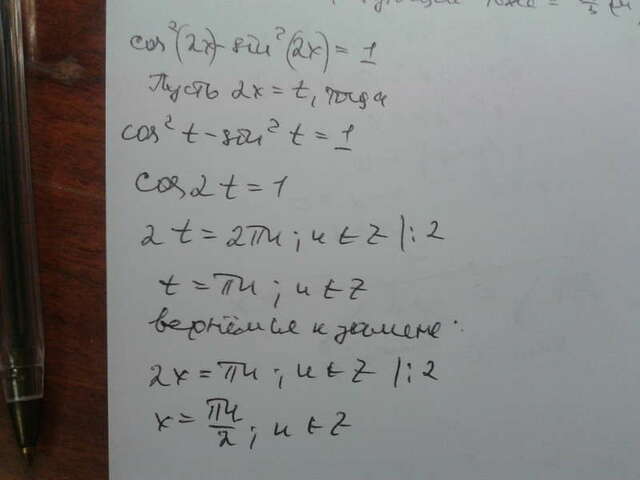 cos²(2x)-sin²(2x)=1
Пусть 2x=t, тогда
cos² t-sin² t=1
cos2t=1
2t=2πn; n∈Z |:2
t=πn; n∈Z
вернёмся к замене:
2x=πn; n∈Z |:2
x=πn/2; n∈Z